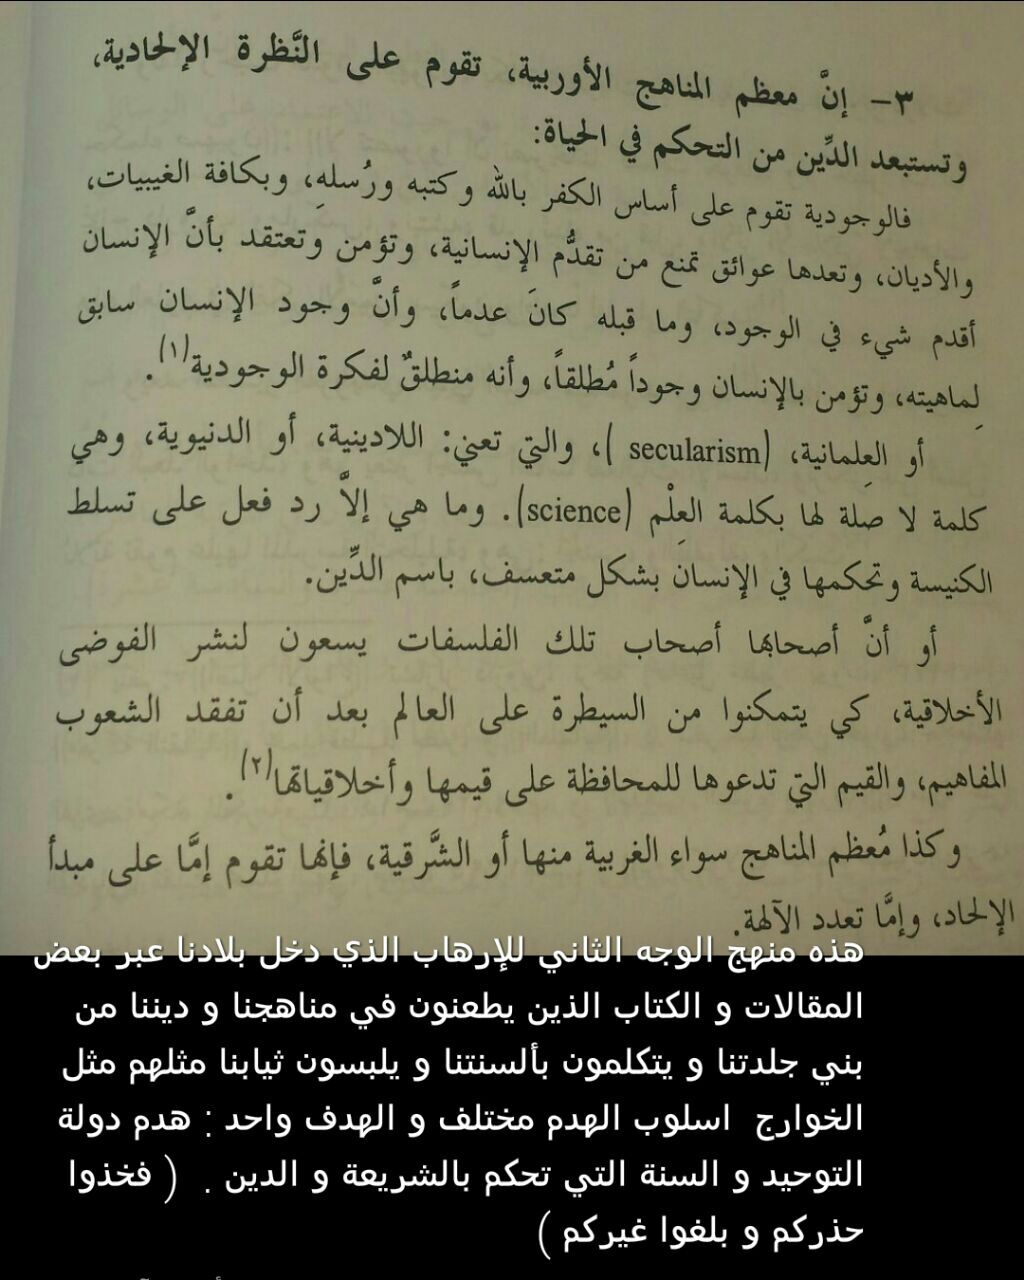 ٣- إنَّ معظم المناهج الأوربية، تقوم على النَّظرة الإلحادية،
وتستبعد الدِّين من التحكم في الحياة:
فالوجودية تقوم على أساس الكفر بالله وكتبه ورُسلهِ، وبكافة الغيبيات،
والأديان، وتعدها عوائق تمنع من تقدُّم الإنسانية، وتؤمن وتعتقد بأنَّ الإنسان
أقدم شيء في الوجود، وما قبله كانَ عدماً، وأنَّ وجود الإنسان سابق
لِماهيته، وتؤمن بالإنسان وجوداً مُطلقاً، وأنه منطلقٌ لفكرة الوجودية(١).
أو العِلمانية، (secularism )، والتي تعني: اللادينية، أو الدنيوية، وهي
كلمة لا صلة لها بكلمة العِلْم (science). وما هي إلاَّ رد فعل على تسلط
الكنيسة وتحكمها في الإنسان بشكل متعسف، باسم الدِّين.
أو أنَّ أصحابها أصحاب تلك الفلسفات يسعون لنشر الفوضى
الأخلاقية، كي يتمكنوا من السيطرة على العالم بعد أن تفقد الشعوب
المفاهيم، والقيم التي تدعوها للمحافظة على قيمها وأخلاقياتها(٢).
وكذا مُعظم المناهج سواء الغربية منها أو الشَّرقية، فإنها تقوم إمَّا على مبدأ
الإلحاد، وإمَّا تعدد الآلهة.
هذه منهج الوجه الثاني للإرهاب الذي دخل بلادنا عبر بعض
المقالات و الكتاب الذين يطعنون في مناهجنا و ديننا من
بني جلدتنا و يتكلمون بألسنتنا و يلبسون ثيابنا مثلهم مثل
الخوارج اسلوب الهدم مختلف و الهدف واحد : هدم دولة
التوحيد و السنة التي تحكم بالشريعة و الدين . ( فخذوا
حذركم و بلغوا غيركم )